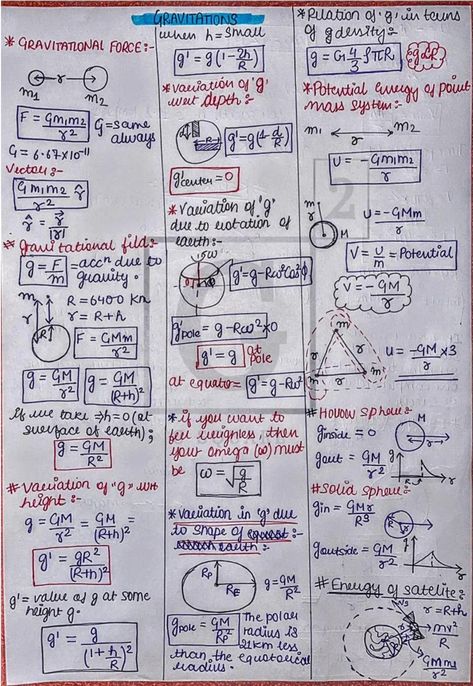 GRAVITATIONS
* GRAVITATIONAL FORCE:-
r
m1 m2
F = Gm1m2/r² G = same always
G = 6.67×10⁻¹¹
Vector:-
Gm1m2/r² r̂
r̂ = r⃗/|r⃗|
* Gravitational fild:-
g = F/m - accⁿ due to gravity.
m
R = 6400 Km
r = R+h
R
F = GMm/r²
g = GM/r² g = GM/(R+h)²
If we take → h=0 (at
surface of earth);
g = GM/R²
# Variation of "g" wrt
height:-
g = GM/r² = GM/(R+h)² =
g' = gR²/(R+h)²
g' = value of g at some
height g.
g' = g/(1+h/R)²
when h = small
g' = g(1-2h/R)
* Variation of 'g'
wrt depth:-
g' = g(1-d/R)
g'center = 0
* Variation of 'g'
due to rotation of
earth:-
ω
g' = g-Rω²Cos²ϕ
g'pole = g-Rω²×0
g' = g at pole
at equator = g' = g-Rω²
* if you want to
feel weighness, then
your omega (ω) must
be ω = √g/R
* Variation in 'g' due
to shape of
earth:-
RP
RE
g = GM/R²
gpole = GM/R² The polar
radius is
21km less
than the equatorical
radius.
* Relation of 'g' in terms
of g density:-
g = G4/3 ρπR g∝R
* Potential Energy of point
mass system:-
m1 m2
r
U = -Gm1m2/r
m
r
M
U = -GMm/r
V = U/m = Potential
V = -GM/r
m
r r
m r m
U = -GM/r ×3
# Hollow sphere:-
ginside = 0
M
gout = GM/r²
# Solid sphere:-
gin = GMr/R³
goutside = GM/r²
# Energy of satelite:-
r = R+h
mv²/R
GMm/r²